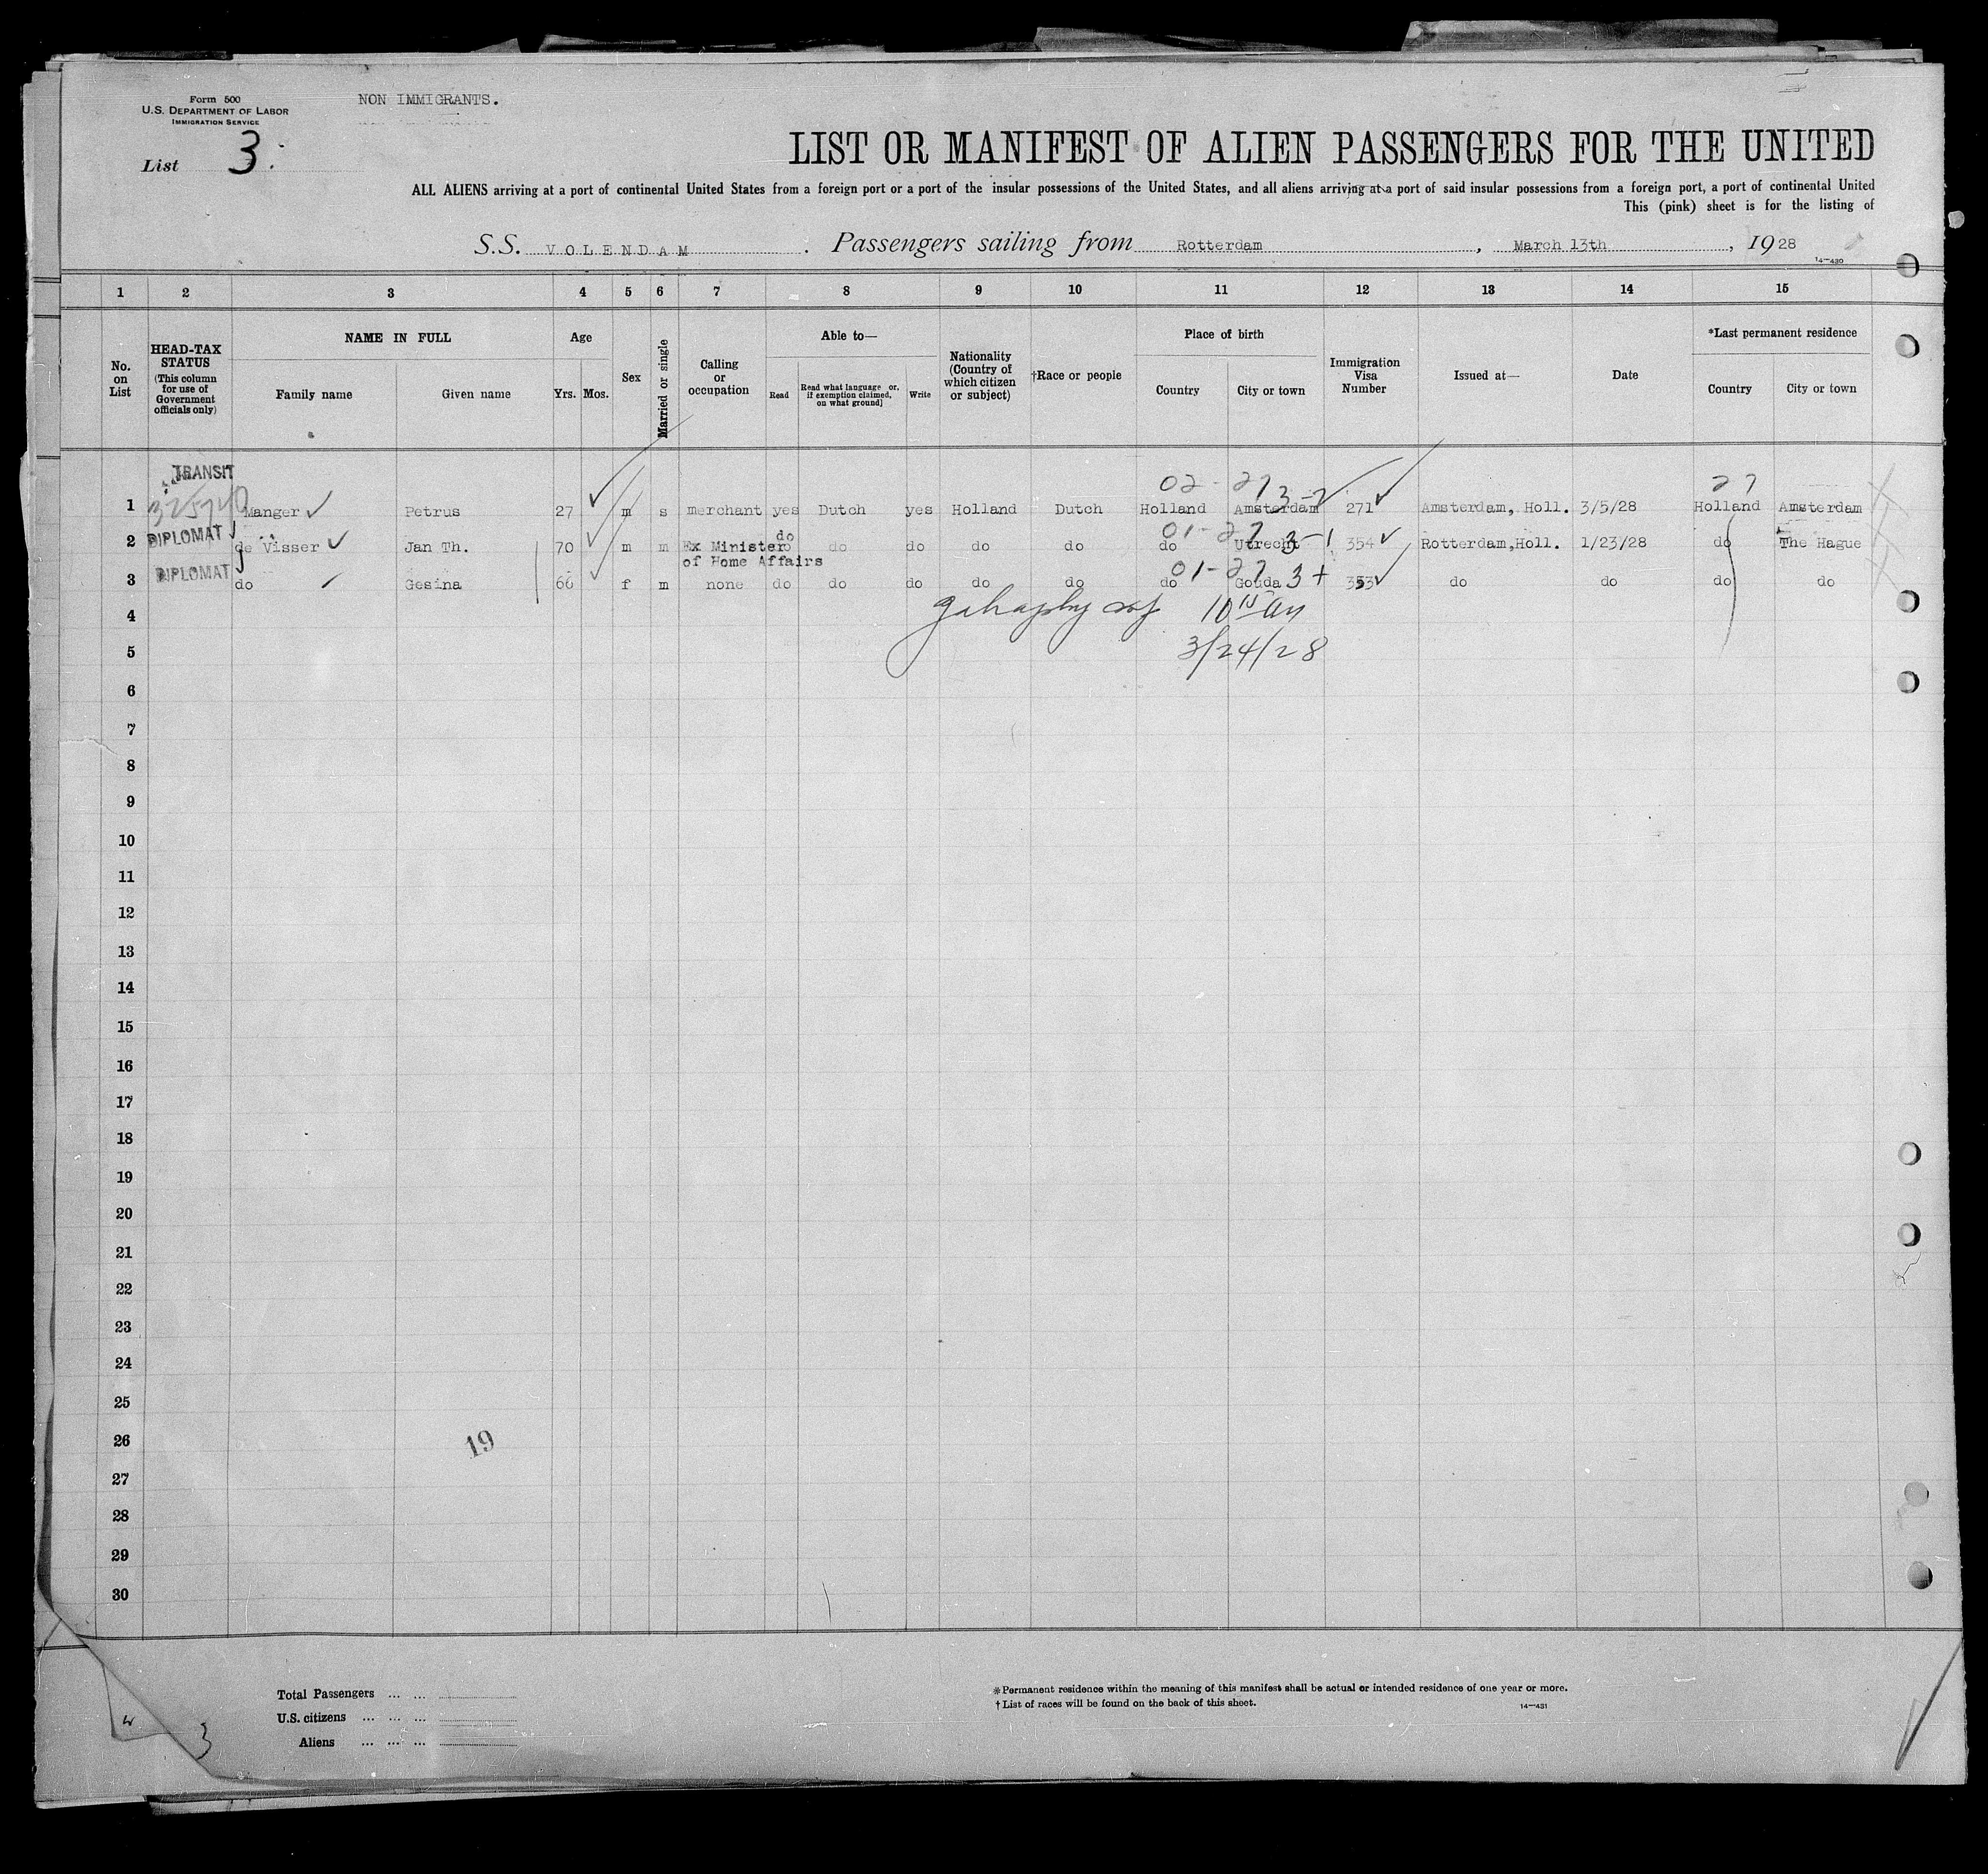 Form 500
U.S. DEPARTMENT OF LABOR
IMMIGRATION SERVICE
NON IMMIGRANTS.
List 3.
LIST OR MANIFEST OF ALIEN PASSENGERS FOR THE UNITED
ALL ALIENS arriving at a port of continental United States from a foreign port or a port of the insular possessions of the United States, and all aliens arriving at a port of said insular possessions from a foreign port, a port of continental United
This (pink) sheet is for the listing of
S.S. VOLENDAM. Passengers sailing from Rotterdam, March 13th, 1928
14—430
1 2 3 4 5 6 7 8 9 10 11 12 13 14 15
No. on List
HEAD-TAX STATUS (This column for use of Government officials only)
NAME IN FULL
Family name
Given name
Age
Yrs. Mos.
Sex
Married or single
Calling or occupation
Able to—
Read
Read what language or, if exemption claimed, on what ground]
Write
Nationality (Country of which citizen or subject)
†Race or people
Place of birth
Country
City or town
Immigration Visa Number
Issued at—
Date
*Last permanent residence
Country
City or town
TRANSIT
02-27 3-2 27
1 Manger Petrus 27 m s merchant yes Dutch yes Holland Dutch Holland Amsterdam 271 Amsterdam, Holl. 3/5/28 Holland Amsterdam
DIPLOMAT
01-27 3-1
2 de Visser Jan Th. 70 m m Ex Minister of Home Affairs do do do do do do Utrecht 354 Rotterdam,Holl. 1/23/28 do The Hague
DIPLOMAT
01-27 3+
3 do Gesina 66 f m none do do do do do do Gouda 353 do do do do
4
3/24/28
5
6
7
8
9
10
11
12
13
14
15
16
17
18
19
20
21
22
23
24
25
26
19
27
28
29
30
Total Passengers ... ...
U.S. citizens ... ... ...
Aliens ... ... ...
*Permanent residence within the meaning of this manifest shall be actual or intended residence of one year or more.
†List of races will be found on the back of this sheet.
14—431
3